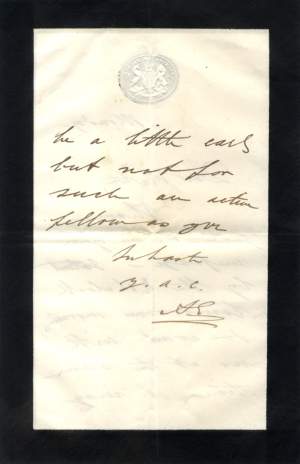 be a little early
but not for
such an active
fellow as you
In haste
y. a. c.
AE